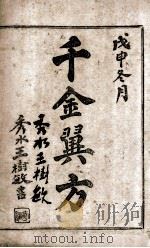 戊申冬月
千金翼方
秀水王樹敏
秀水王樹敏書
www.mtoou.info